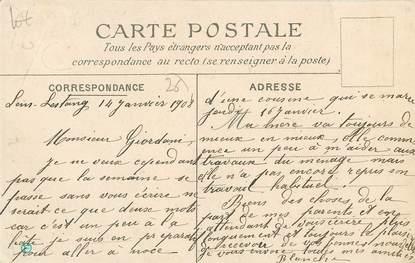 CARTE POSTALE
Tous les Pays étrangers n'acceptent pas la
correspondance au recto (se renseigner à la poste)
CORRESPONDANCE
Lens-Lestang 14 Janvier 1908
Monsieur Giordani,
je ne veux cependant
pas que la semaine se
passe sans vous écrire ne
serait ce que deux mots
car c'est un peu à la
hâte je suis en préparatifs
pour aller à noce
ADRESSE
d'une cousine qui se marie
jeudi 16 janvier.
Ma mère va toujours de
mieux en mieux, elle comm
ence un peu à m'aider aux
travaux du ménage mais
elle n'a pas encore repris son
travail habituel.
Biens des choses de la
part de mes parents et en
attendant de vous écrire plus
longuement et toujours le plaisir
de recevoir de vos bonnes nouvelles
je vous envoie toute mes amitiés
Blanche